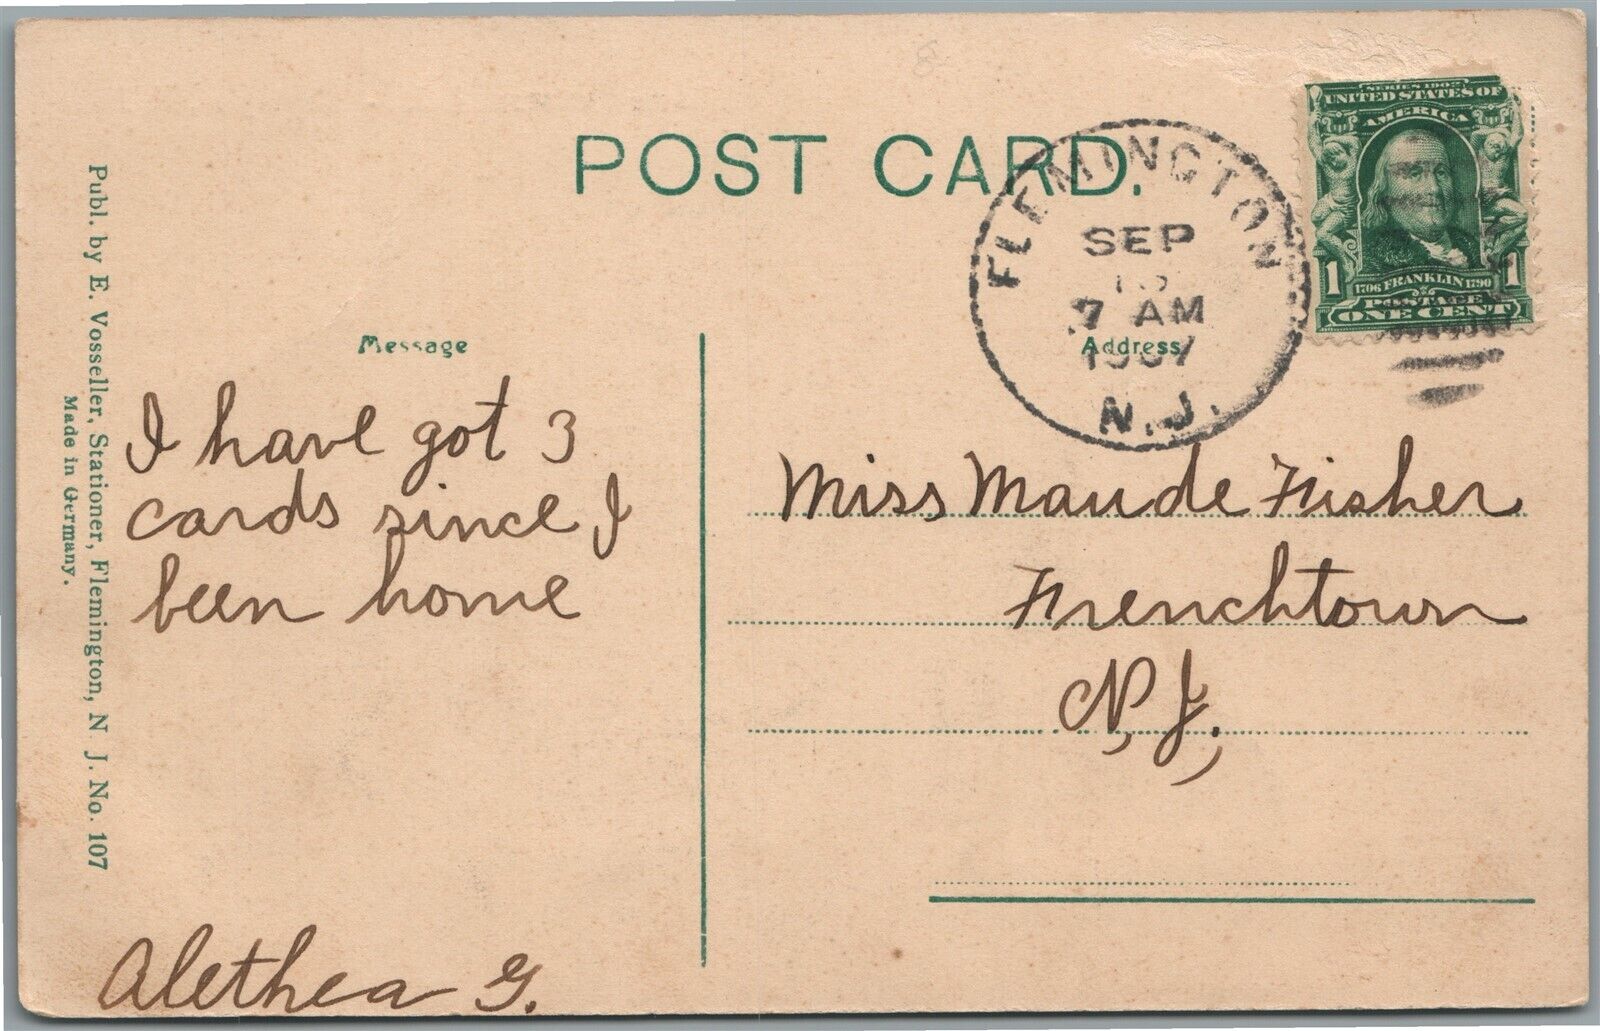 POST CARD.
FLEMINGTON
SEP
7 AM
1907
N.J.
SERIES 1902
UNITED STATES OF
AMERICA
1 1706 FRANKLIN 1790 1
POSTAGE
ONE CENT
Message
Address
I have got 3
cards since I
been home
Alethea G.
Miss Maude Fisher
Frenchtown
N, J.,
Publ. by E. Vosseller, Stationer, Flemington, N J. No. 107
Made in Germany.